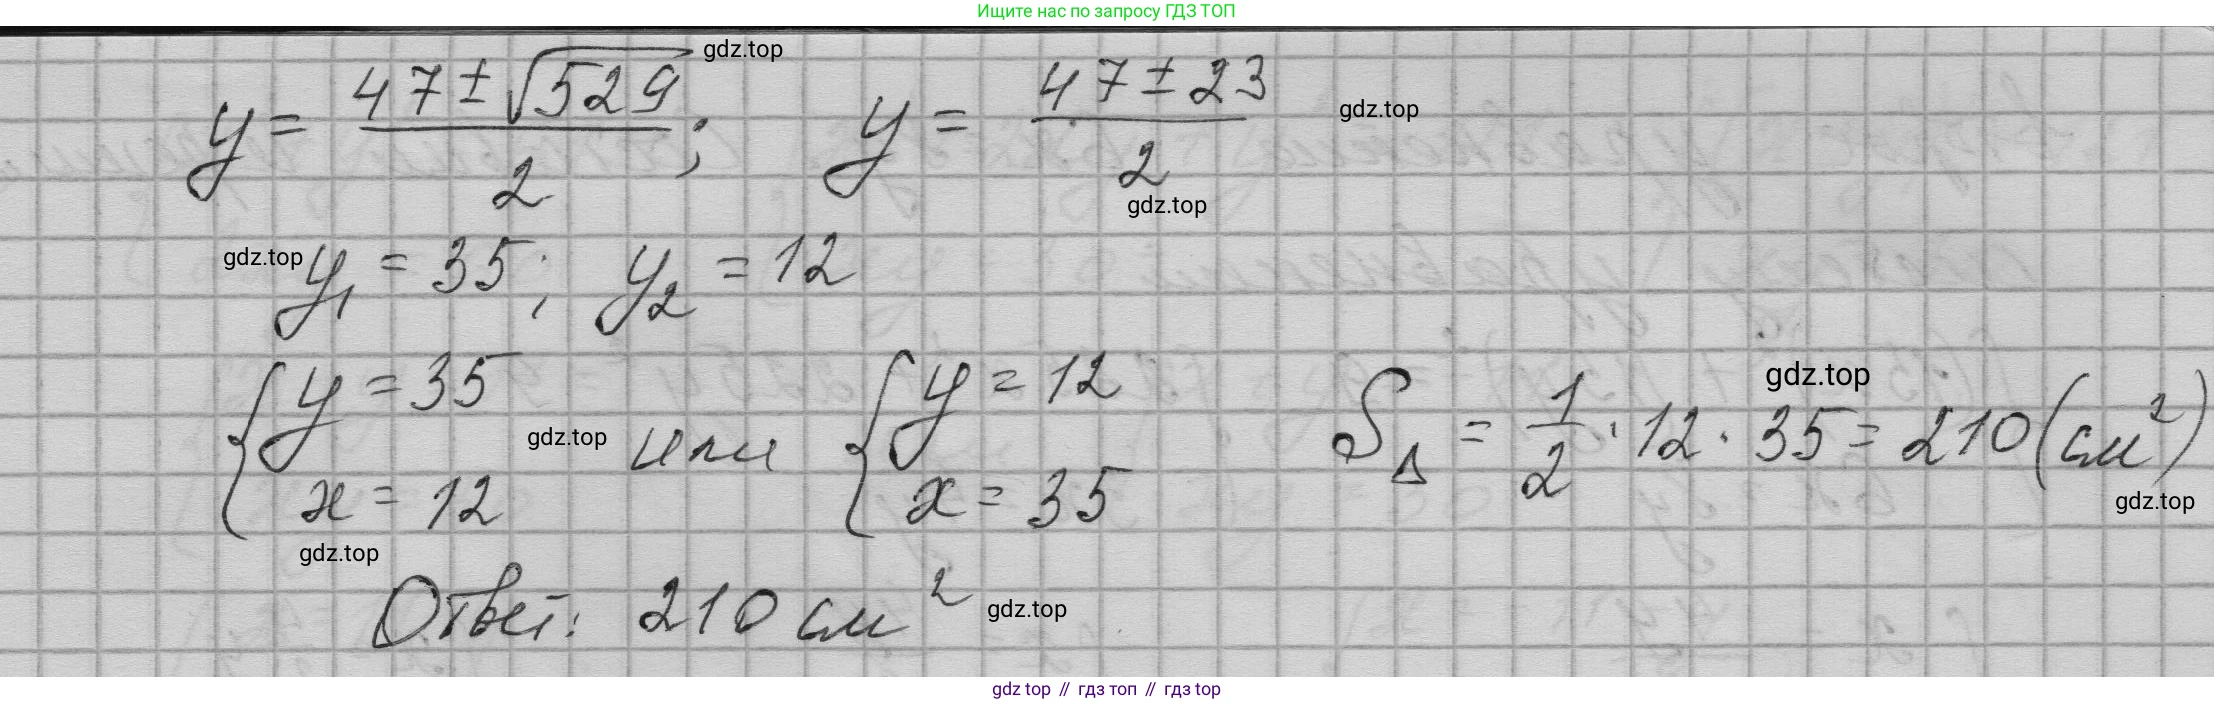 Ищите нас по запросу ГДЗ ТОП
gdz.top
y = (47 ± √529)/2; y = (47 ± 23)/2
gdz.top
gdz.top
gdz.top
y₁ = 35; y₂ = 12
{ y = 35 или { y = 12
x = 12 x = 35
gdz.top
gdz.top
S△ = 1/2 · 12 · 35 = 210 (см²)
gdz.top
gdz.top
Ответ: 210 см²
gdz.top
gdz top // гдз топ // гдз top